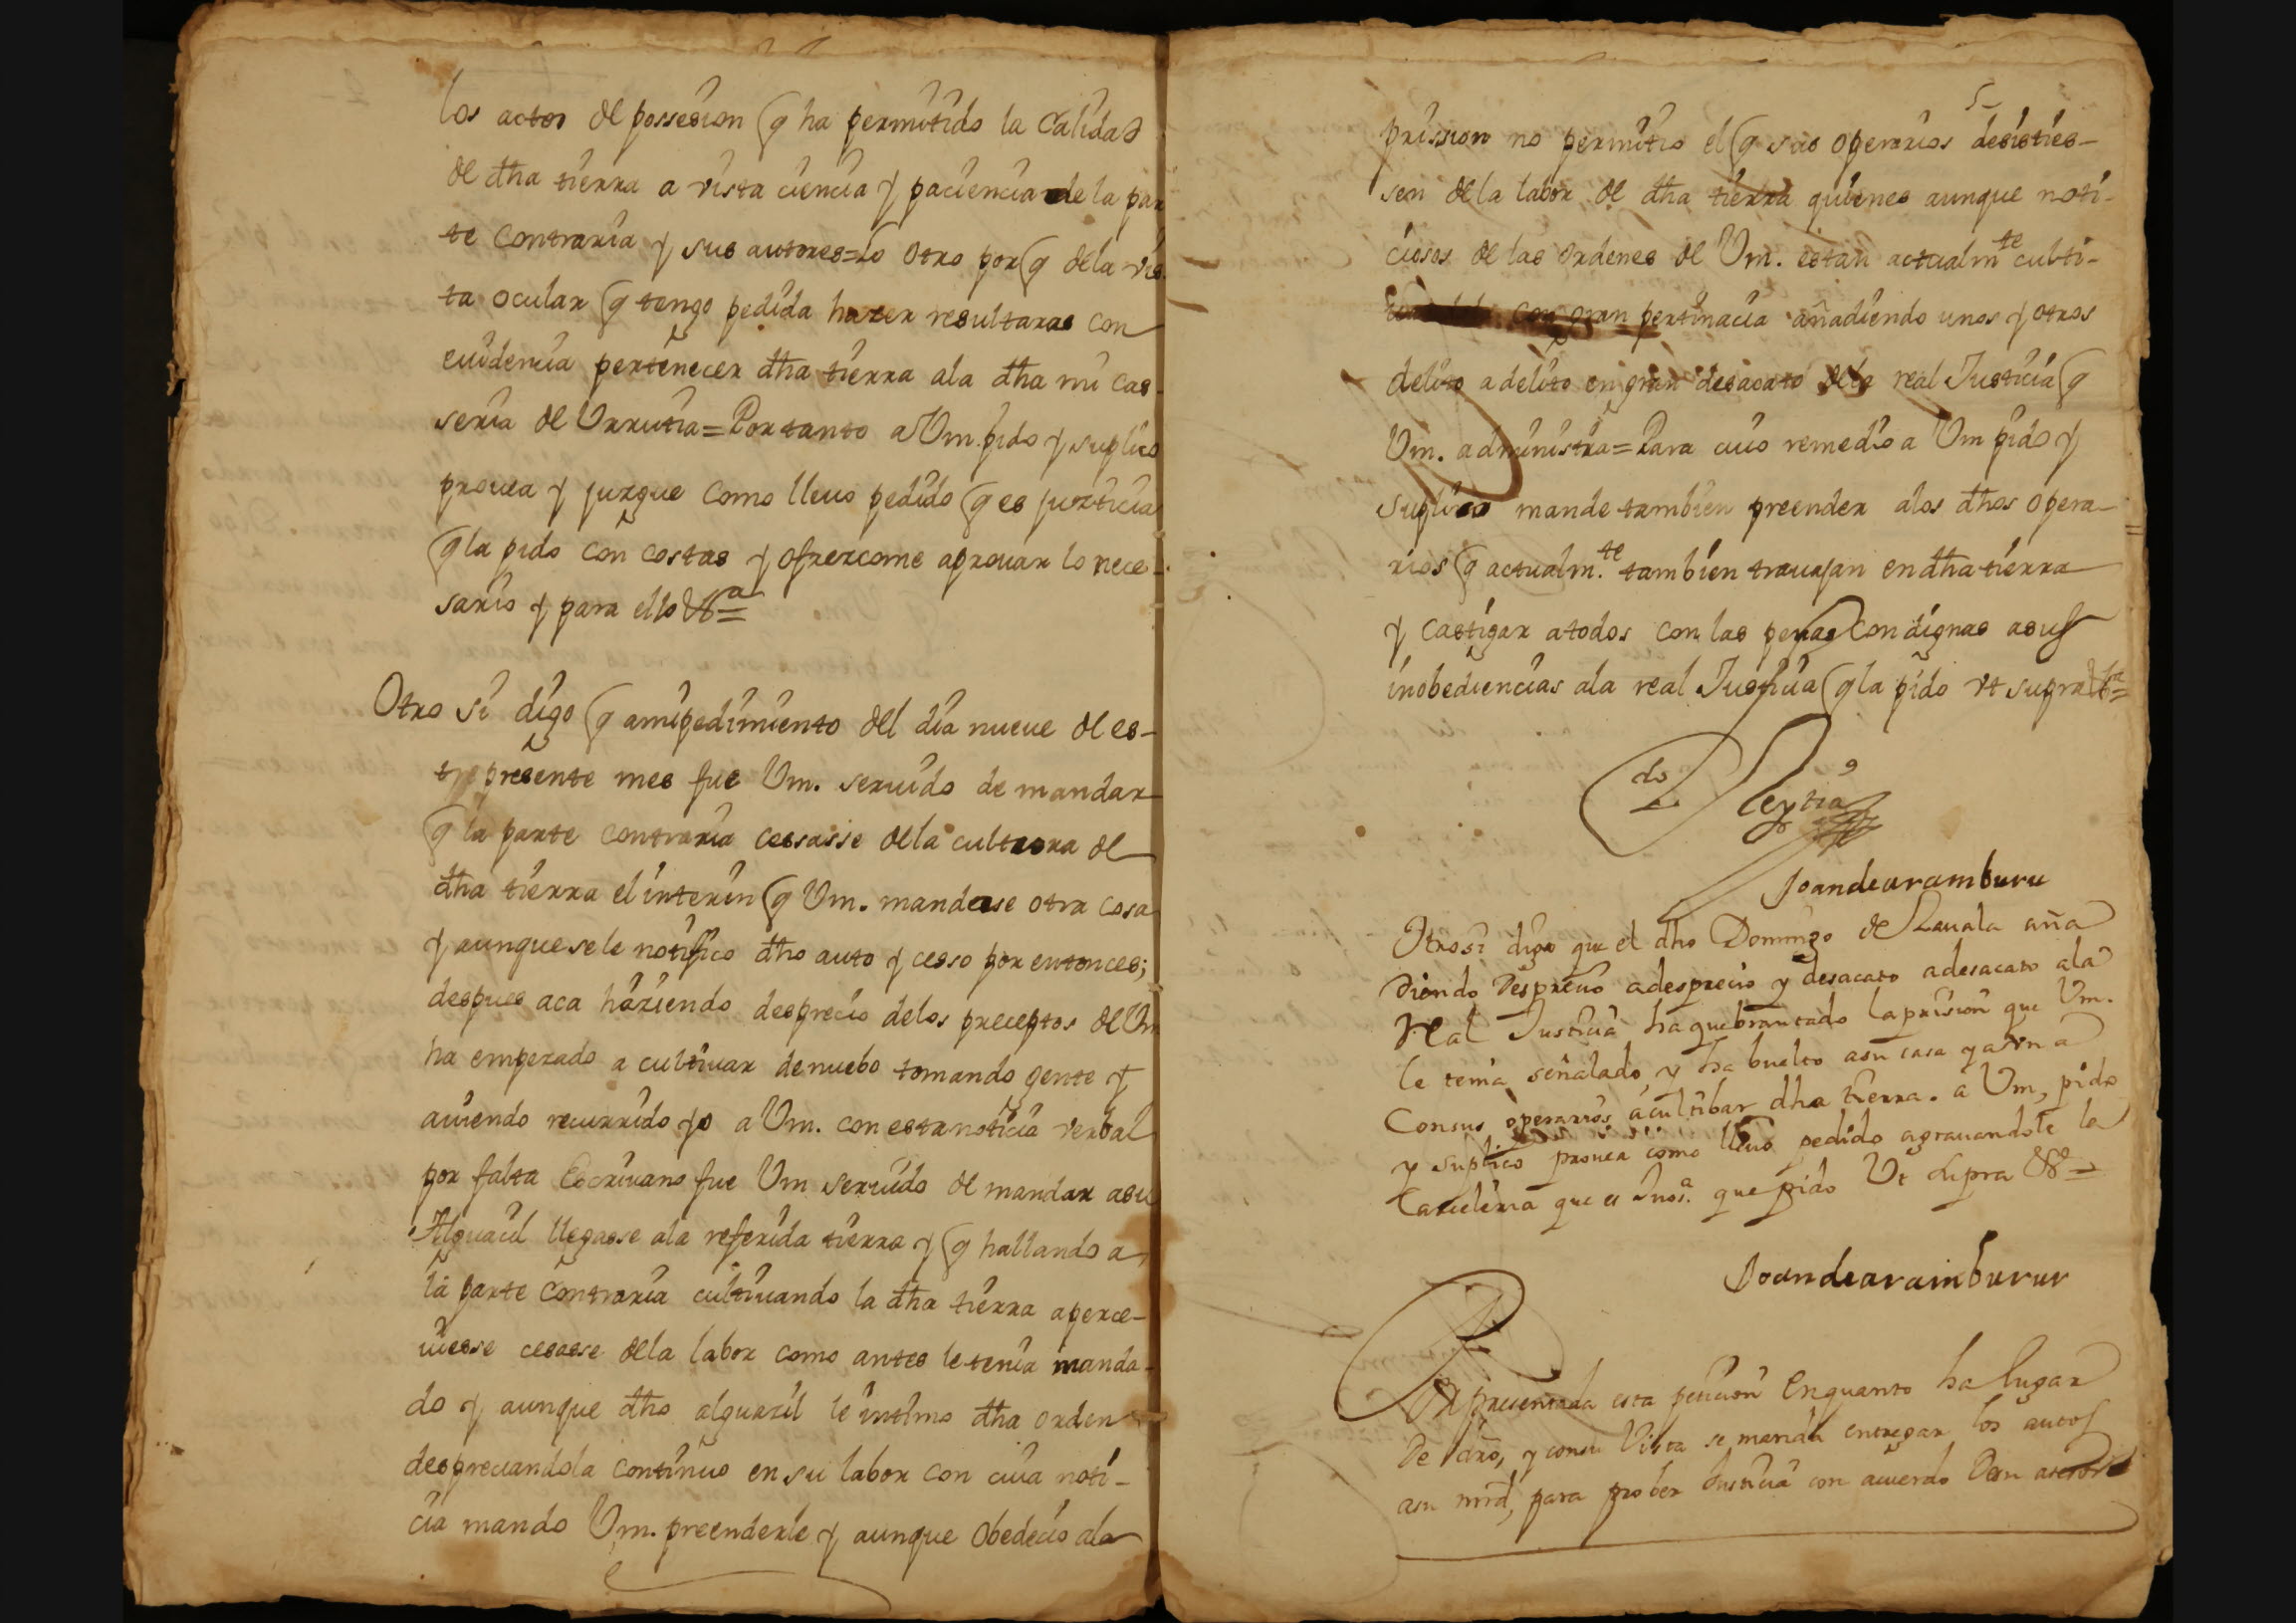 los actos de possesion q ha permitido la calidad
de dha tierra a vista ciencia y paciencia de la par
te contraria y sus autores=lo otro por q de la vis
ta ocular q tengo pedida hazer resultaras con
euidencia pertenecer dha tierra ala dha mi cas-
seria de Urrutia=Por tanto a Um. pido y suplico
prouea y juzgue como lleuo pedido q es justicia
q la pido con costas y ofrezcome aprouar lo nece-
sario y para ello &a=
Otro si digo q amipedimiento del dia nueue de es-
te presente mes fue Um. seruido de mandar
q la parte contraria cessasse de la cultura de
dha tierra el interin q Um. mandase otra cosa
y aunque se le notifico dho auto y cesso por entonces;
despues aca haziendo desprecio de los preceptos de Um
ha empezado a cultiuar denuebo tomando gente y
auiendo recurrido yo a Um. con esta noticia verbal
por falta Escriuano fue Um seruido de mandar asu
Alguacil llegasse ala referida tierra y q hallando a
la parte contraria cultiuando la dha tierra aperce-
uiesse cesasse dela labor como antes le tenia manda-
do y aunque dho alguazil le intimo dha orden
despreciandola continuo en su labor con cuia noti-
cia mando Um. preenderle y aunque obedecio ala
5
prission no permitio el q sus operarios desisties-
sen de la labor de dha tierra quienes aunque noti-
ciosos de las ordenes de Um. estan actualmte culti-
con gran pertinacia añadiendo unos y otros
delito a delito en gran desacato dela real Justicia q
Um. administra=Para cuio remedio a Um pido y
suplico mande tambien preender alos dhos opera-
rios q actualm.te tambien trauajan en dha tierra
y castigar atodos con las penas condignas asus
inobediencias ala real Justicia q la pido vt supra &a=
do Leytia
Joandearamburu
Otrosi digo que el dho Domingo de Zauala aña
diendo Desprecio adesprecio y desacato adesacato ala
Real Justicia ha quebrantado la prision que Um.
le tenia señalado, y ha buelto asu casa y
Consus operarios acultibar dha tierra. a Um, pido
y suplico prouea como lleuo pedido agrauandole la
Carceleria que es Jus.a que pido Ut supra &a=
Joandearamburur
Por presentada esta peticion Enquanto ha lugar
De dro, y consu Vista se manda entregar los autos
asu mrd, para prober Justicia con acuerdo Desu asesor